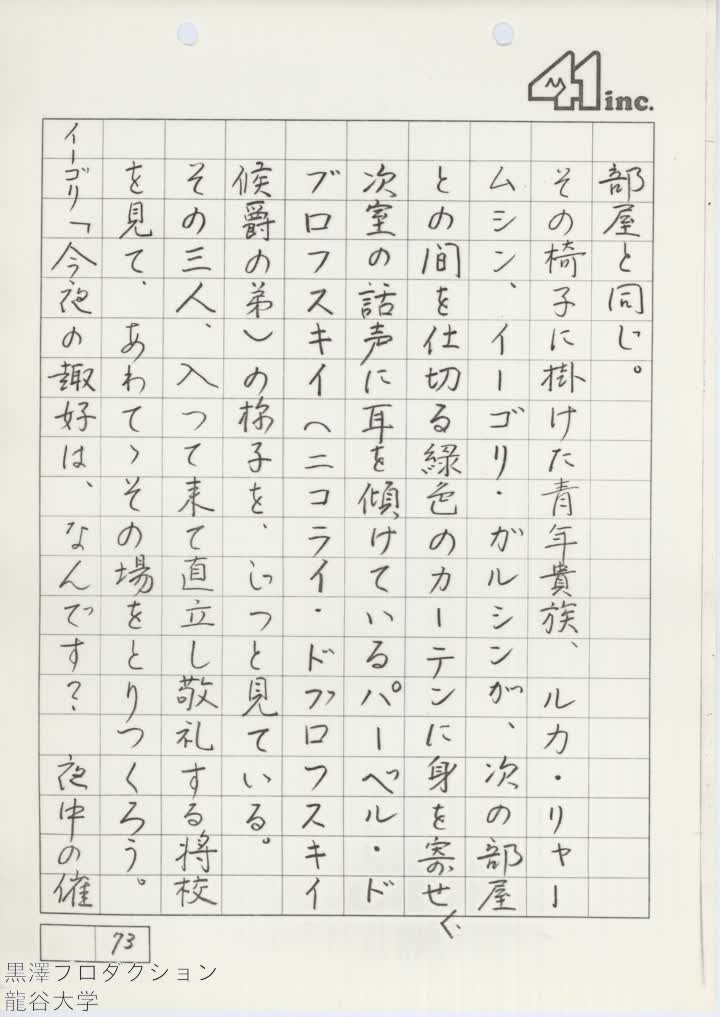 41 inc.
部屋と同じ。
その椅子に掛けた青年貴族、ルカ・リャー
ムシン、イーゴリ・ガルシンが、次の部屋
との間を仕切る緑色のカーテンに身を寄せ、
次室の話声に耳を傾けているパーベル・ド
ブロフスキイ（ニコライ・ドブロフスキイ
候爵の弟）の様子を、じっと見ている。
その三人、入って来て直立し敬礼する将校
を見て、あわてゝその場をとりつくろう。
イーゴリ「今夜の趣好は、なんです？　夜中の催
73
黒澤プロダクション
龍谷大学